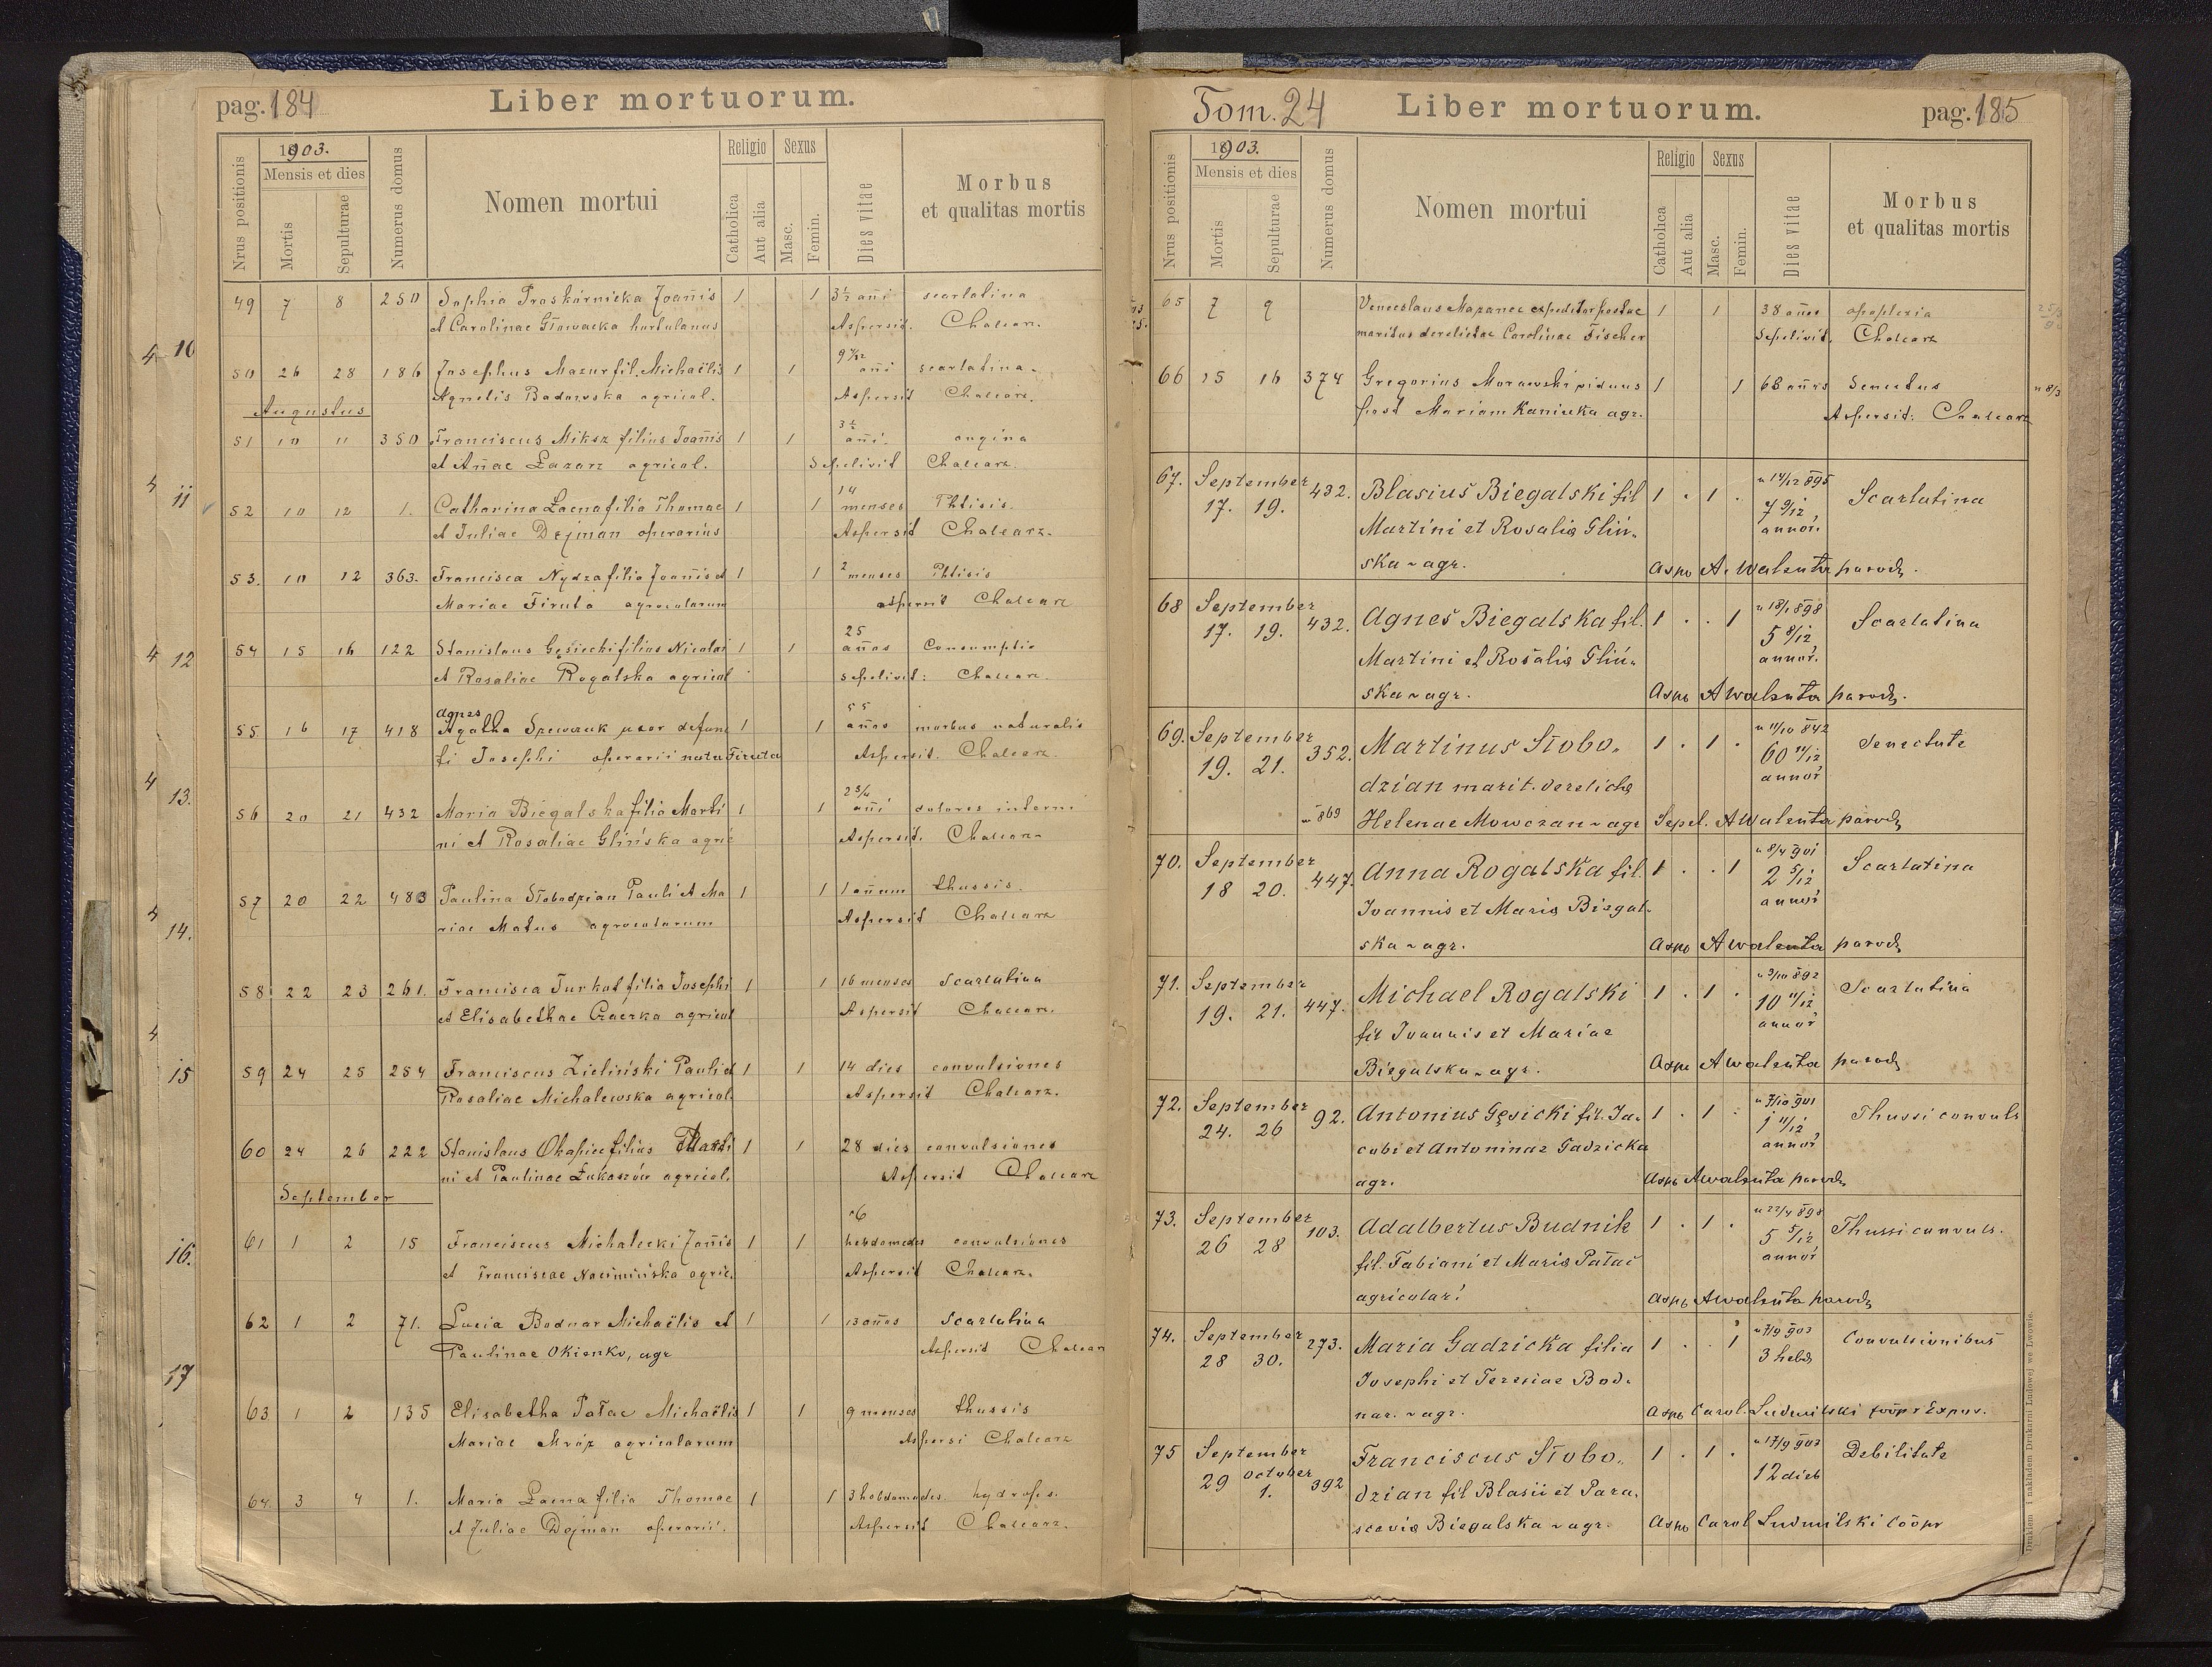 pag. 184
Liber mortuorum.
1903.
Mensis et dies
Nrus positionis
Mortis
Sepulturae
Numerus domus
Nomen mortui
Religio
Catholica
Aut alia
Sexus
Masc.
Femin.
Dies vitae
Morbus
et qualitas mortis
49 7 8 250 Sophia Proskórnicka Joañis 1 1 3½ añi scarlatina
et Carolinae Głowacka hortulanus Aspersit. Chalcarz.
50 26 28 186 Josephus Mazur fil. Michaëlis 1 1 añi scarlatina.
Agnetis Badowska agricol. Aspersit Chalcarz.
Augustus
51 10 11 350 Franciscus Miksz filius Joañis 1 1 3½ añi. angina
et Añae Łazarz agricol. Sepelivit Chalcarz.
52 10 12 1. Catharina Łacna filia Thomae 1 1 14 menses Phtisis.
et Juliae Dejman operarius Aspersit Chalcarz.
53. 10 12 363. Francisca Nydza filia Joañis et 1 1 2 menses Phtisis
Mariae Firuta agrocolarum aspersit Chalcarz
54 15 16 122 Stanislaus Gęsiecki filius Nicolai 1 1 25 años Consumptio
et Rosaliae Rogalska agricol sepelivit: Chalcarz.
Agnes
55 16 17 418 Agatha Szewczuk uxor defunc 1 1 55 años morbus naturalis
ti Josephi operarii nata Firuta Aspersit. Chalcarz.
56 20 21 432 Maria Biegalska filia Marti 1 1 2 3/4 añi dolores interni
ni et Rosaliae Glińska agric Aspersit. Chalcarz
57 20 22 483 Paulina Słobodzian Pauli et Ma 1 1 1 añum thussis.
riae Matus agrocolarum Aspersit Chalcarz
58 22 23 261. Francisca Turkot filia Josephi 1 1 16 menses Scarlatina
et Elisabethae Czaczka agricol Aspersit Chalcarz.
59 24 25 254 Franciscus Zieliński Pauli et 1 1 14 dies convulsiones
Rosaliae Michalewska agricol. Aspersit Chalcarz.
60 24 26 222 Stanislaus Okapiec filius Marti 1 1 28 dies convulsiones
ni et Paulinae Łukaszów agricol. Aspersit Chalcarz
September
61 1 2 15 Franciscus Michalecki Joañis 1 1 6 hebdomades convulsiones
et Franciscae agric. Aspersit Chalcarz.
62 1 2 71. Lucia Bodnar Michaëlis et 1 1 13 años Scarlatina
Paulinae Okienko, agr Aspersit Chalcarz
63 1 2 135 Elisabetha Pałac Michaëlis 1 1 9 menses thussis
Mariae Mróz agricolarum Aspersi Chalcarz
64. 3 4 1. Maria Łacna filia Thomae 1 1 3 hebdomades. hydrops.
et Juliae Dejman operarii. Aspersit Chalcarz.
4 10
4 11
4 12
4 13.
4 14.
4 15
16.
17
Tom. 24
Liber mortuorum.
pag. 185
1903.
Mensis et dies
Nrus positionis
Mortis
Sepulturae
Numerus domus
Nomen mortui
Religio
Catholica
Aut alia
Sexus
Masc.
Femin.
Dies vitae
Morbus
et qualitas mortis
65 7 9 Venceslaus Mazanec expeditor postae 1 1 38 años apoplexia
maritus derelictae Carolinae Fischer Sepelivit. Chalcarz
66 15 16 374 Gregorius Morawski viduus 1 1 68 años Senectus
post Mariam Kaniuka agr. Aspersit: Chalcarz
67. September
17. 19. 432. Blasius Biegalski fil 1 . 1 . n 14/12 895 7 9/12 annor. Scarlatina
Martini et Rosalię Gliń-
ska ~ agr. Aspo A. Walenta paroch.
68 September
17. 19. 432. Agnes Biegalska fil. 1 . . 1 n 18/1 898 5 8/12 annor. Scarlatina
Martini et Rosalię Gliń-
ska ~ agr. Aspo A Walenta paroch.
69. September
19. 21. 352. Martinus Słobo- 1 . 1 . n 11/10 842 60 11/12 annor Senectute
dzian marit. derelictę
869 Helenae Mowczan ~ agr Sepel. A Walenta paroch
70. September
18 20. 447. Anna Rogalska fil. 1 . . 1 n 8/4 901 2 5/12 annor Scarlatina
Ioannis et Marię Biegal-
ska ~ agr. Aspo A Walenta paroch
71. September
19. 21. 447. Michael Rogalski 1 . 1 . n 3/10 892 10 11/12 annor Scarlatina
fil Ioannis et Mariae
Biegalska ~ agr. Aspo A Walenta paroch
72. September
24. 26 92. Antonius Gęsicki fil. Ja- 1 . 1 . n 7/10 901 1 11/12 annor Thussi convuls
cobi et Antoninae Gadzicka
agr. Aspo A Walenta paroch
73. September
26 28 103. Adalbertus Budnik 1 . 1 . n 22/4 898 5 5/12 annor Thussi convuls.
fil. Fabiani et Marię Pałac
agricolar. Aspo A Walenta paroch
74. September
28 30. 273. Maria Gadzicka filia 1 . . 1 n 7/9 903 3 hebd Convulsionibus
Josephi et Teresiae Bod-
nar. ~ agr. Aspo Carol. Ludwilski
75 September
29 October 1. 392 Franciscus Słobo- 1 . 1 . n 17/9 903 12 dieb Debilitate
dzian fil Blasii et Para-
scevię Biegalska ~ agr. Aspo Carol Ludwilski coöpr
Drukiem i nakładem Drukarni Ludowej we Lwowie.